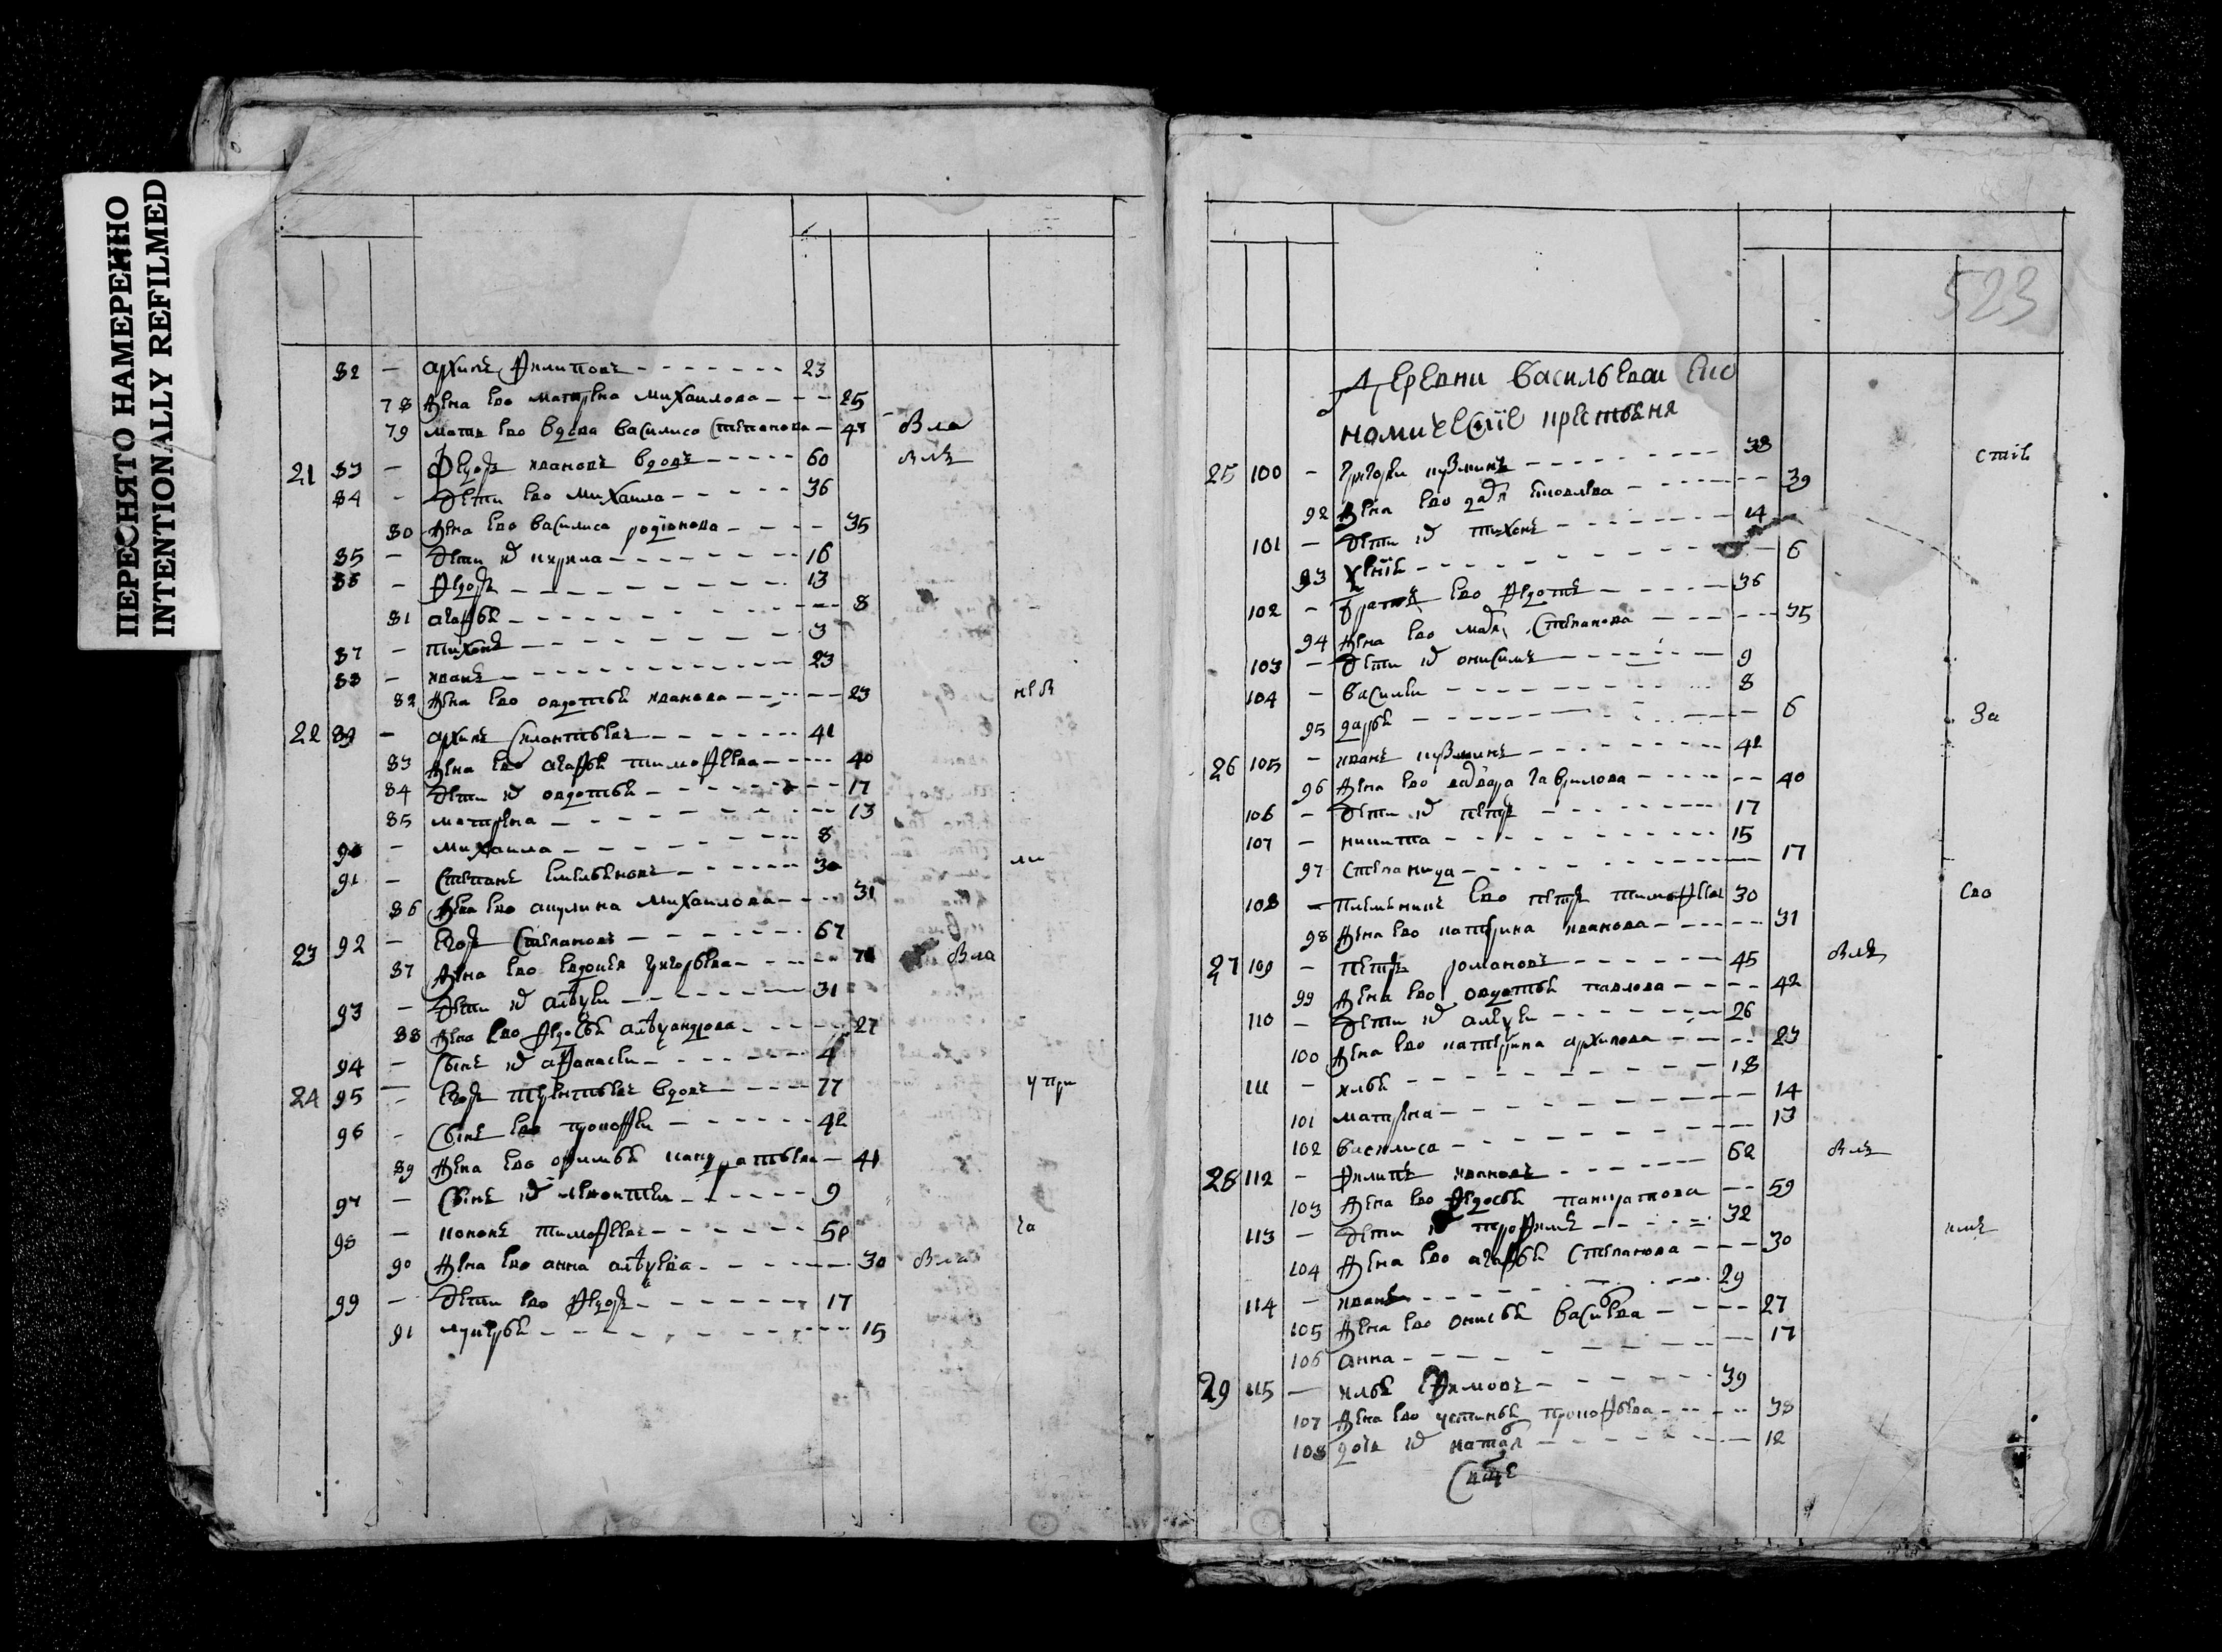 ПЕРЕСНЯТО НАМЕРЕННО
INTENTIONALLY REFILMED
82 — архипъ филиповъ 23
78 жена ево матрена михаилова 25
79 мать ево вдова василиса степанова вла
21 83 — федоръ ивановъ вдовъ 60 влъ
84 — дети ево михаила 36
80 жена ево василиса родіонова 35
85 — дети их кирила 16
86 — федоръ 13
81 агафья 8
87 — тихонъ 3
88 — иванъ 23
82 жена ево овдотья иванова 23
22 89 — архипъ силантьевъ 41
83 жена ево агафья тимофеева 40
84 дети их овдотья 17
85 матрена 13
90 — михаила 8
91 — степанъ емельяновъ 30 ли
86 жена ево акулина михаилова 31
23 92 — егоръ степановъ 67
87 жена ево евдокея григорьева вла
93 — дети их алеѯеи 31
88 жена ево федосья алеѯандрова 27
94 — сынъ их афанасеи 4
24 95 — егоръ терентьевъ вдовъ 77 упри
96 — сынъ ево прокофеи 42
89 жена ево афимья кандратьева 41
97 — сынъ их леонтеи 9
98 — кононъ тимофеевъ га
90 жена ево анна алеѯева 30 вла
99 — дети ево федоръ 17
91 лукерья 15
523
деревни васильевои
25 100 — григореи кузминъ 38
92 жена ево яковлева 39
101 — дети их тихонъ 14
93 6
102 — братъ ево федотъ 36
94 жена ево степанова 35
103 — дети их онисимъ 9
104 — василеи 8
95 дарья 6 за
26 105 — иванъ кузминъ 42
96 жена ево варвара гаврилова 40
106 — дети их петръ 17
107 — никита 15
97 степанида 17
108 — племеникъ ево петръ тимофеевъ 30 сво
98 жена ево катерина иванова 31
27 109 — петръ романовъ 45 влъ
99 жена ево овдотья павлова 42
110 — дети их алеѯеи 26
100 жена ево катерина архипова 23
111 — илья 18
101 матрена 14
102 василиса 13
28 112 — филипъ ивановъ 62 влъ
103 жена ево федосья панкратова 59
113 — дети их трофимъ 32
104 жена ево агафья степанова 30
114 — иванъ 29
105 жена ево анисья васильева 27
106 анна 17
29 115 — илья ефимовъ 39
107 жена ево устинья прокофьева 38
108 дочь их наталья 12